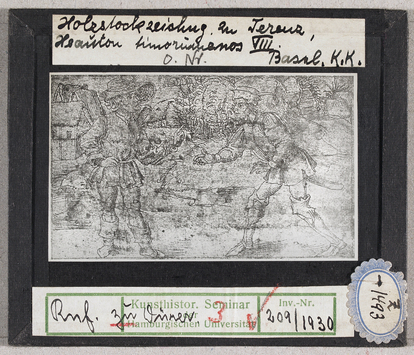 Holzstockzeichng. zu Terenz,
Heauton timorumenos VIII.
O. Nr. Basel, K.K.
Ruf. zu Dürer 3
Kunsthistor. Seminar
der
Hamburgischen Universität
Inv.-Nr.
209/1930
Z
→ 1493